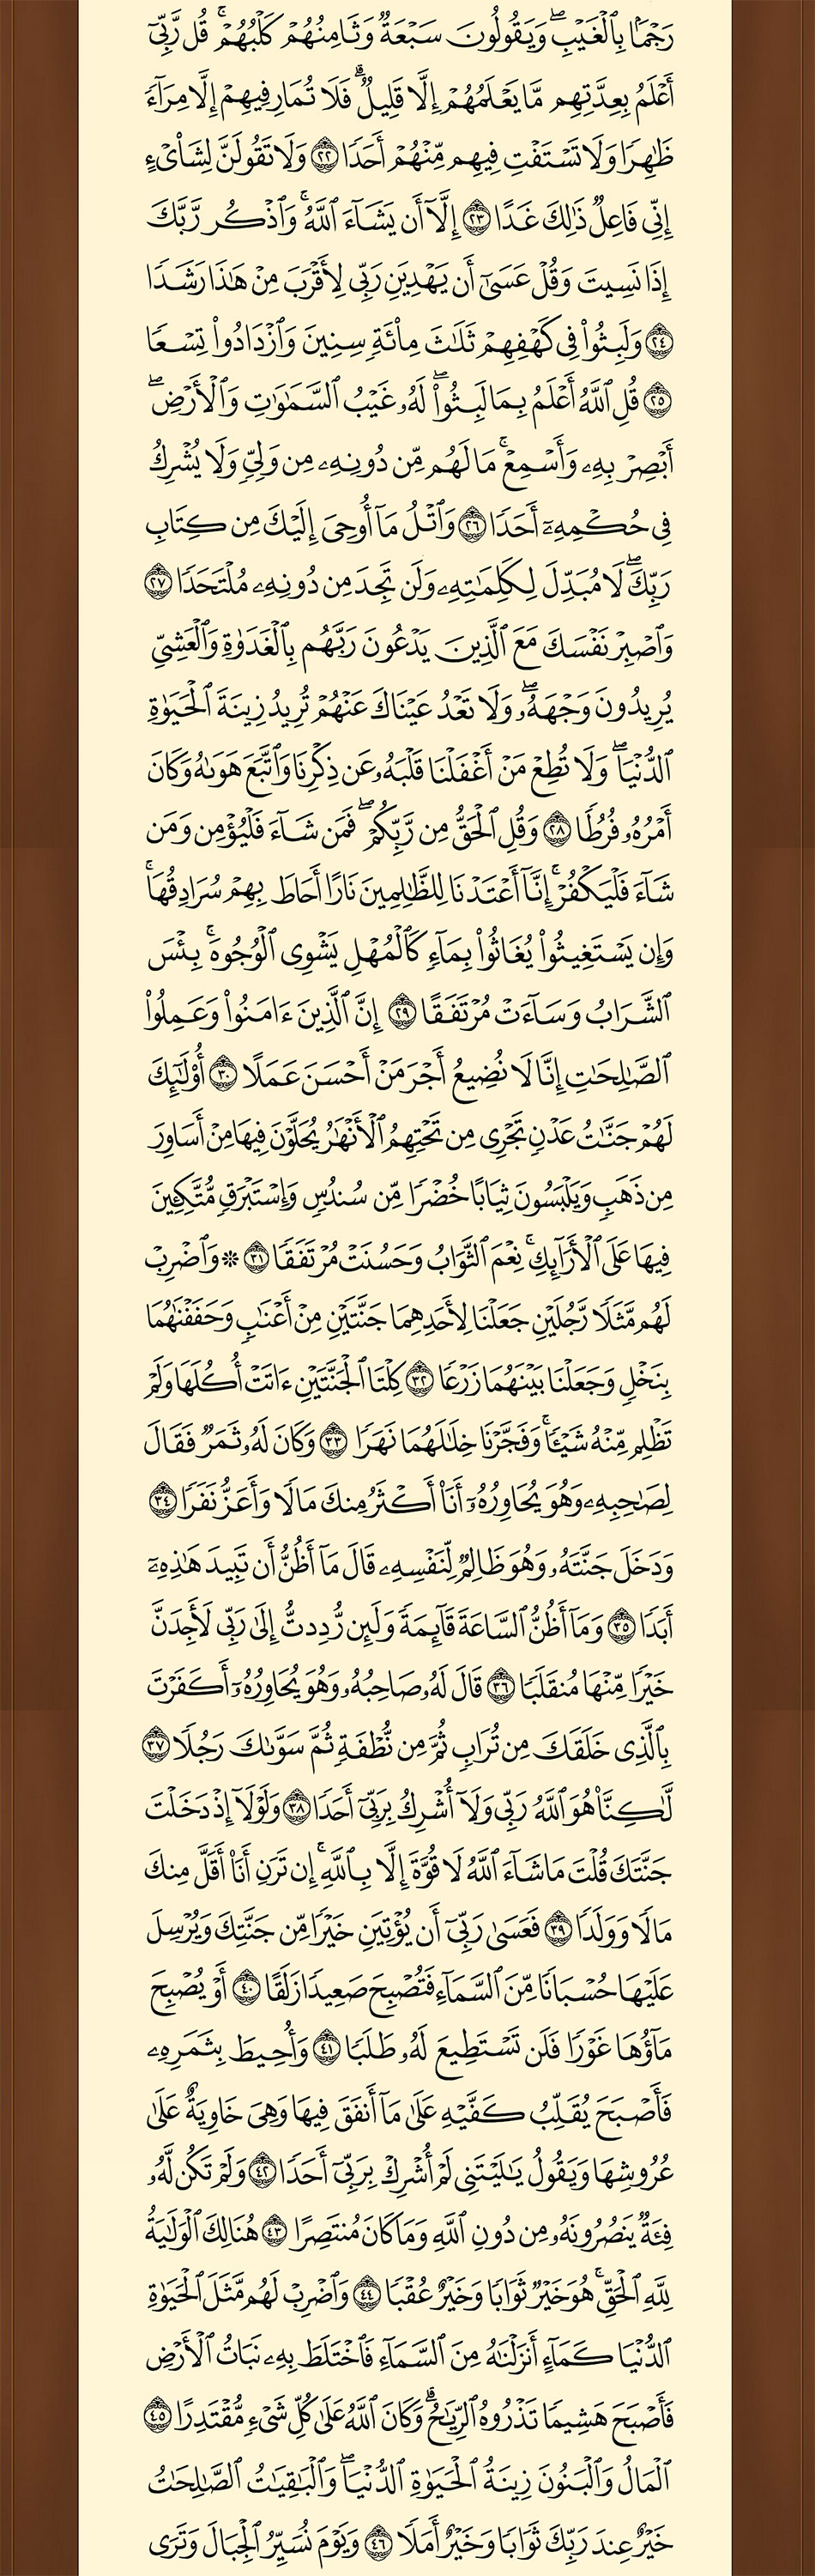 رَجْمًۢا بِٱلْغَيْبِۖ وَيَقُولُونَ سَبْعَةٌ وَثَامِنُهُمْ كَلْبُهُمْۚ قُل رَّبِّىٓ
أَعْلَمُ بِعِدَّتِهِم مَّا يَعْلَمُهُمْ إِلَّا قَلِيلٌۗ فَلَا تُمَارِ فِيهِمْ إِلَّا مِرَآءً
ظَٰهِرًا وَلَا تَسْتَفْتِ فِيهِم مِّنْهُمْ أَحَدًا ٢٢ وَلَا تَقُولَنَّ لِشَا۟ىْءٍ
إِنِّى فَاعِلٌ ذَٰلِكَ غَدًا ٢٣ إِلَّآ أَن يَشَآءَ ٱللَّهُۚ وَٱذْكُر رَّبَّكَ
إِذَا نَسِيتَ وَقُلْ عَسَىٰٓ أَن يَهْدِيَنِ رَبِّى لِأَقْرَبَ مِنْ هَٰذَا رَشَدًا
٢٤ وَلَبِثُوا۟ فِى كَهْفِهِمْ ثَلَٰثَ مِا۟ئَةٍ سِنِينَ وَٱزْدَادُوا۟ تِسْعًا
٢٥ قُلِ ٱللَّهُ أَعْلَمُ بِمَا لَبِثُوا۟ۖ لَهُۥ غَيْبُ ٱلسَّمَٰوَٰتِ وَٱلْأَرْضِۖ
أَبْصِرْ بِهِۦ وَأَسْمِعْۚ مَا لَهُم مِّن دُونِهِۦ مِن وَلِىٍّ وَلَا يُشْرِكُ
فِى حُكْمِهِۦٓ أَحَدًا ٢٦ وَٱتْلُ مَآ أُوحِىَ إِلَيْكَ مِن كِتَابِ
رَبِّكَۖ لَا مُبَدِّلَ لِكَلِمَٰتِهِۦ وَلَن تَجِدَ مِن دُونِهِۦ مُلْتَحَدًا ٢٧
وَٱصْبِرْ نَفْسَكَ مَعَ ٱلَّذِينَ يَدْعُونَ رَبَّهُم بِٱلْغَدَوٰةِ وَٱلْعَشِىِّ
يُرِيدُونَ وَجْهَهُۥۖ وَلَا تَعْدُ عَيْنَاكَ عَنْهُمْ تُرِيدُ زِينَةَ ٱلْحَيَوٰةِ
ٱلدُّنْيَاۖ وَلَا تُطِعْ مَنْ أَغْفَلْنَا قَلْبَهُۥ عَن ذِكْرِنَا وَٱتَّبَعَ هَوَىٰهُ وَكَانَ
أَمْرُهُۥ فُرُطًا ٢٨ وَقُلِ ٱلْحَقُّ مِن رَّبِّكُمْۖ فَمَن شَآءَ فَلْيُؤْمِن وَمَن
شَآءَ فَلْيَكْفُرْۚ إِنَّآ أَعْتَدْنَا لِلظَّٰلِمِينَ نَارًا أَحَاطَ بِهِمْ سُرَادِقُهَاۚ
وَإِن يَسْتَغِيثُوا۟ يُغَاثُوا۟ بِمَآءٍ كَٱلْمُهْلِ يَشْوِى ٱلْوُجُوهَۚ بِئْسَ
ٱلشَّرَابُ وَسَآءَتْ مُرْتَفَقًا ٢٩ إِنَّ ٱلَّذِينَ ءَامَنُوا۟ وَعَمِلُوا۟
ٱلصَّٰلِحَٰتِ إِنَّا لَا نُضِيعُ أَجْرَ مَنْ أَحْسَنَ عَمَلًا ٣٠ أُو۟لَٰٓئِكَ
لَهُمْ جَنَّٰتُ عَدْنٍ تَجْرِى مِن تَحْتِهِمُ ٱلْأَنْهَٰرُ يُحَلَّوْنَ فِيهَا مِنْ أَسَاوِرَ
مِن ذَهَبٍ وَيَلْبَسُونَ ثِيَابًا خُضْرًا مِّن سُندُسٍ وَإِسْتَبْرَقٍ مُّتَّكِـِٔينَ
فِيهَا عَلَى ٱلْأَرَآئِكِۚ نِعْمَ ٱلثَّوَابُ وَحَسُنَتْ مُرْتَفَقًا ٣١ ۞ وَٱضْرِبْ
لَهُم مَّثَلًا رَّجُلَيْنِ جَعَلْنَا لِأَحَدِهِمَا جَنَّتَيْنِ مِنْ أَعْنَٰبٍ وَحَفَفْنَٰهُمَا
بِنَخْلٍ وَجَعَلْنَا بَيْنَهُمَا زَرْعًا ٣٢ كِلْتَا ٱلْجَنَّتَيْنِ ءَاتَتْ أُكُلَهَا وَلَمْ
تَظْلِم مِّنْهُ شَيْـًٔاۚ وَفَجَّرْنَا خِلَٰلَهُمَا نَهَرًا ٣٣ وَكَانَ لَهُۥ ثَمَرٌ فَقَالَ
لِصَٰحِبِهِۦ وَهُوَ يُحَاوِرُهُۥٓ أَنَا۠ أَكْثَرُ مِنكَ مَالًا وَأَعَزُّ نَفَرًا ٣٤
وَدَخَلَ جَنَّتَهُۥ وَهُوَ ظَالِمٌ لِّنَفْسِهِۦ قَالَ مَآ أَظُنُّ أَن تَبِيدَ هَٰذِهِۦٓ
أَبَدًا ٣٥ وَمَآ أَظُنُّ ٱلسَّاعَةَ قَآئِمَةً وَلَئِن رُّدِدتُّ إِلَىٰ رَبِّى لَأَجِدَنَّ
خَيْرًا مِّنْهَا مُنقَلَبًا ٣٦ قَالَ لَهُۥ صَاحِبُهُۥ وَهُوَ يُحَاوِرُهُۥٓ أَكَفَرْتَ
بِٱلَّذِى خَلَقَكَ مِن تُرَابٍ ثُمَّ مِن نُّطْفَةٍ ثُمَّ سَوَّىٰكَ رَجُلًا ٣٧
لَّٰكِنَّا۠ هُوَ ٱللَّهُ رَبِّى وَلَآ أُشْرِكُ بِرَبِّىٓ أَحَدًا ٣٨ وَلَوْلَآ إِذْ دَخَلْتَ
جَنَّتَكَ قُلْتَ مَا شَآءَ ٱللَّهُ لَا قُوَّةَ إِلَّا بِٱللَّهِۚ إِن تَرَنِ أَنَا۠ أَقَلَّ مِنكَ
مَالًا وَوَلَدًا ٣٩ فَعَسَىٰ رَبِّىٓ أَن يُؤْتِيَنِ خَيْرًا مِّن جَنَّتِكَ وَيُرْسِلَ
عَلَيْهَا حُسْبَانًا مِّنَ ٱلسَّمَآءِ فَتُصْبِحَ صَعِيدًا زَلَقًا ٤٠ أَوْ يُصْبِحَ
مَآؤُهَا غَوْرًا فَلَن تَسْتَطِيعَ لَهُۥ طَلَبًا ٤١ وَأُحِيطَ بِثَمَرِهِۦ
فَأَصْبَحَ يُقَلِّبُ كَفَّيْهِ عَلَىٰ مَآ أَنفَقَ فِيهَا وَهِىَ خَاوِيَةٌ عَلَىٰ
عُرُوشِهَا وَيَقُولُ يَٰلَيْتَنِى لَمْ أُشْرِكْ بِرَبِّىٓ أَحَدًا ٤٢ وَلَمْ تَكُن لَّهُۥ
فِئَةٌ يَنصُرُونَهُۥ مِن دُونِ ٱللَّهِ وَمَا كَانَ مُنتَصِرًا ٤٣ هُنَالِكَ ٱلْوَلَٰيَةُ
لِلَّهِ ٱلْحَقِّۚ هُوَ خَيْرٌ ثَوَابًا وَخَيْرٌ عُقْبًا ٤٤ وَٱضْرِبْ لَهُم مَّثَلَ ٱلْحَيَوٰةِ
ٱلدُّنْيَا كَمَآءٍ أَنزَلْنَٰهُ مِنَ ٱلسَّمَآءِ فَٱخْتَلَطَ بِهِۦ نَبَاتُ ٱلْأَرْضِ
فَأَصْبَحَ هَشِيمًا تَذْرُوهُ ٱلرِّيَٰحُۗ وَكَانَ ٱللَّهُ عَلَىٰ كُلِّ شَىْءٍ مُّقْتَدِرًا ٤٥
ٱلْمَالُ وَٱلْبَنُونَ زِينَةُ ٱلْحَيَوٰةِ ٱلدُّنْيَاۖ وَٱلْبَٰقِيَٰتُ ٱلصَّٰلِحَٰتُ
خَيْرٌ عِندَ رَبِّكَ ثَوَابًا وَخَيْرٌ أَمَلًا ٤٦ وَيَوْمَ نُسَيِّرُ ٱلْجِبَالَ وَتَرَى